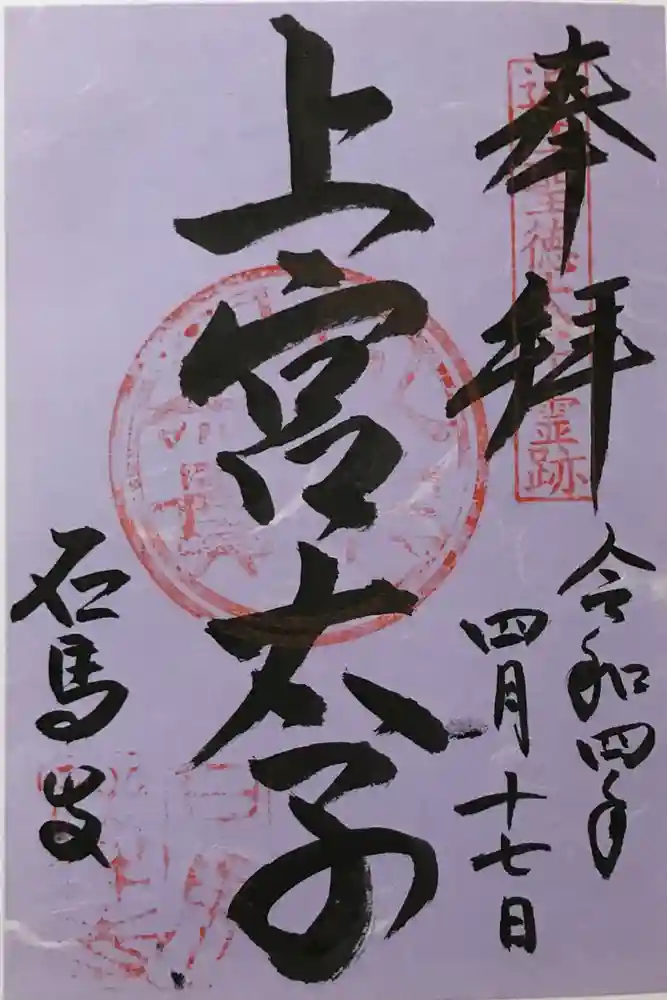 奉拝
聖徳太
霊跡
令和四年
四月十七日
上宮太子
石馬寺